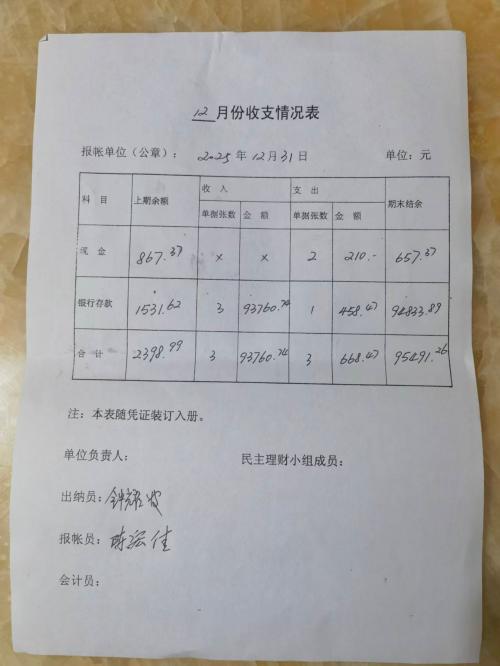 12月份收支情况表
报帐单位（公章）： 2025年12月31日 单位：元
科 目 上期余额 收 入 支 出 期末结余
单据张数 金 额 单据张数 金 额
现 金 867.37 × × 2 210.- 657.37
银行存款 1531.62 3 93760.74 1 458.47 94833.89
合 计 2398.99 3 93760.74 3 668.47 95491.26
注：本表随凭证装订入册。
单位负责人： 民主理财小组成员：
出纳员：钟耀
报帐员：陈宏佳
会计员：